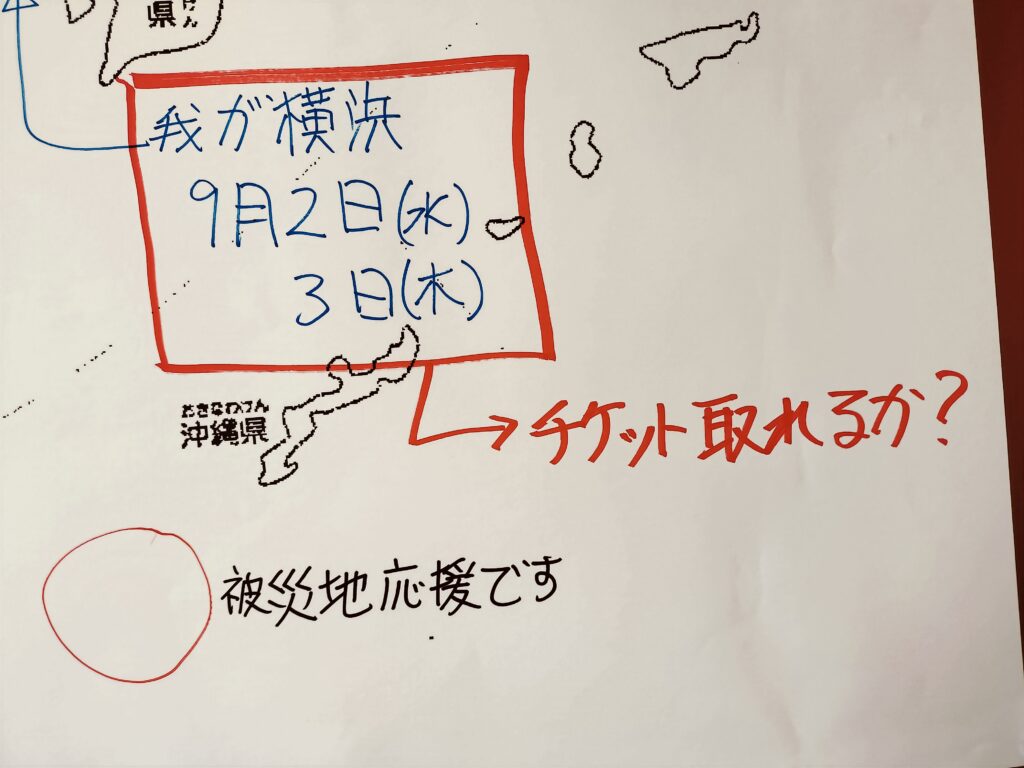 県
けん
我が横浜
9月2日(水)
3日(木)
おきなわけん
沖縄県
チケット取れるか?
被災地応援です